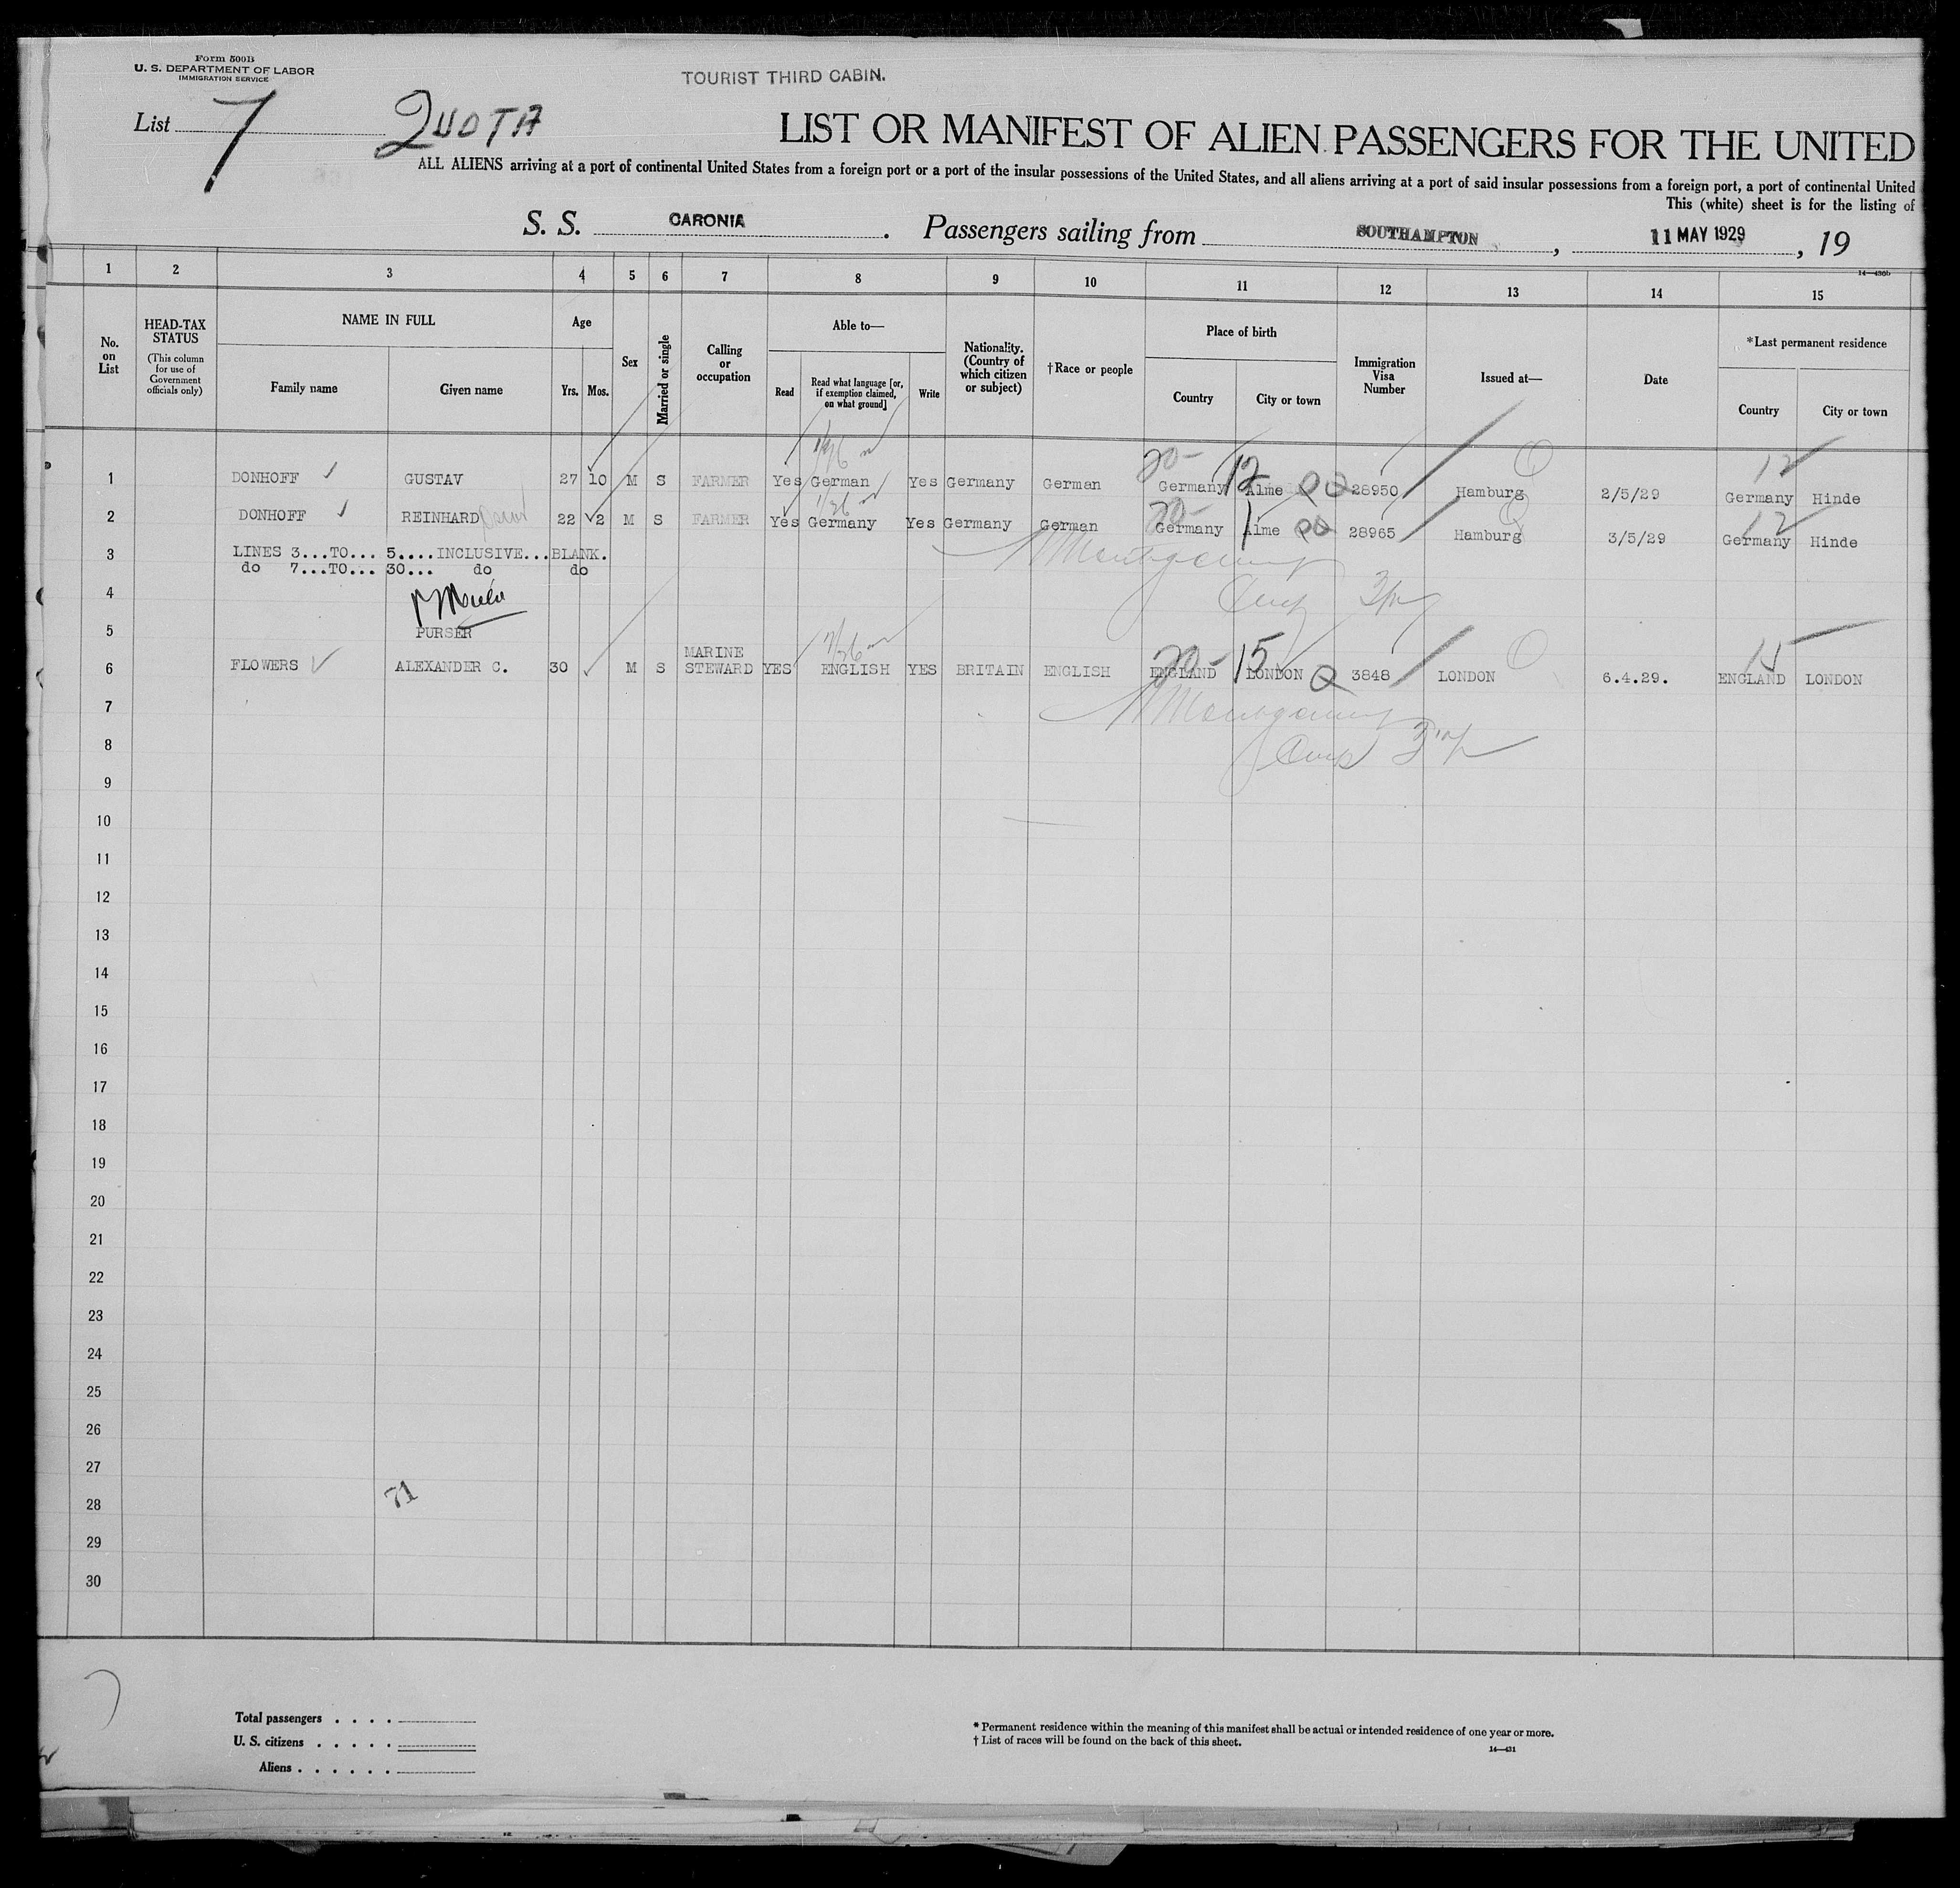 Form 500B
U. S. DEPARTMENT OF LABOR
IMMIGRATION SERVICE
TOURIST THIRD CABIN.
List 7 QUOTA
LIST OR MANIFEST OF ALIEN PASSENGERS FOR THE UNITED
ALL ALIENS arriving at a port of continental United States from a foreign port or a port of the insular possessions of the United States, and all aliens arriving at a port of said insular possessions from a foreign port, a port of continental United
This (white) sheet is for the listing of
S. S. CARONIA. Passengers sailing from SOUTHAMPTON, 11 MAY 1929, 19
14—430b
1 2 3 4 5 6 7 8 9 10 11 12 13 14 15
No. on List
HEAD-TAX STATUS
(This column for use of Government officials only)
NAME IN FULL
Family name
Given name
Age
Yrs. Mos.
Sex
Married or single
Calling or occupation
Able to—
Read
Read what language [or, if exemption claimed, on what ground]
Write
Nationality. (Country of which citizen or subject)
†Race or people
Place of birth
Country
City or town
Immigration Visa Number
Issued at—
Date
*Last permanent residence
Country
City or town
20- 12 12
1 DONHOFF GUSTAV 27 10 M S FARMER Yes German Yes Germany German Germany Alme 28950 Hamburg 2/5/29 Germany Hinde
20- 12
2 DONHOFF REINHARD 22 2 M S FARMER Yes Germany Yes Germany German Germany Alme 28965 Hamburg 3/5/29 Germany Hinde
3 LINES 3...TO... 5....INCLUSIVE...BLANK.
do 7...TO... 30... do do
Montgomery
4
5 PURSER
20- 15 15
6 FLOWERS ALEXANDER C. 30 M S MARINE STEWARD YES ENGLISH YES BRITAIN ENGLISH ENGLAND LONDON Q 3848 LONDON 6.4.29. ENGLAND LONDON
7 Montgomery
8
9
10
11
12
13
14
15
16
17
18
19
20
21
22
23
24
25
26
27
28 71
29
30
Total passengers . . . .
U. S. citizens . . . . .
Aliens . . . . . .
* Permanent residence within the meaning of this manifest shall be actual or intended residence of one year or more.
† List of races will be found on the back of this sheet.
14—431